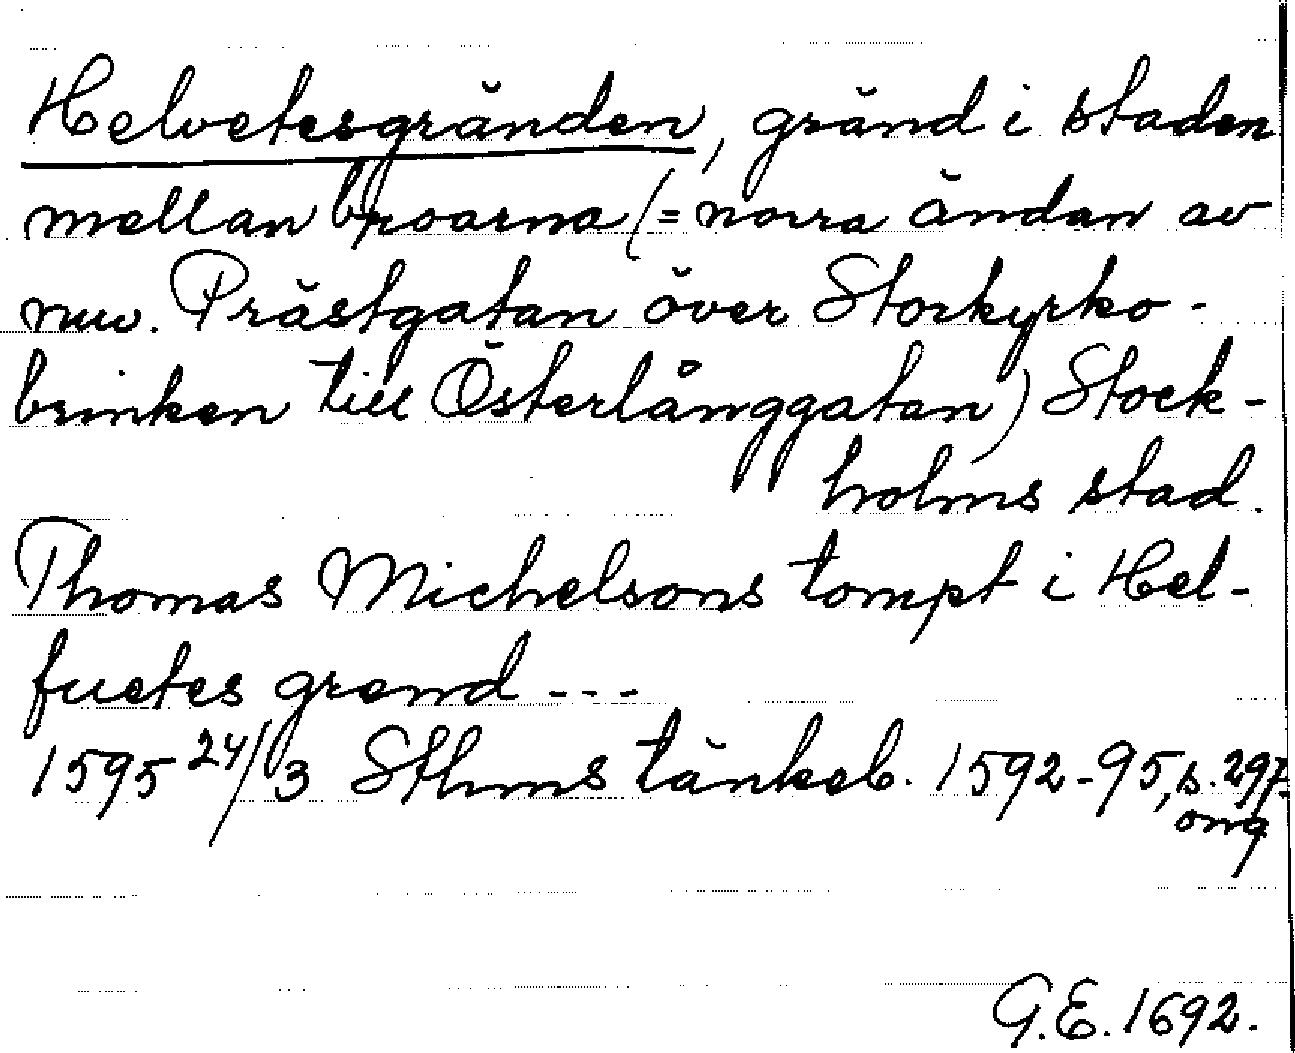 Helvetesgränden, gränd i staden
mellan broarna (= norra ändan av
nuv. Prästgatan över Storkyrko-
brinken till Österlånggatan) Stock-
holms stad.
Thomas Michelsons tompt i Hel-
fuetes grend ---
1595 24/3 Sthms tänkeb. 1592-95, s. 297.
orig
G.E. 1692.